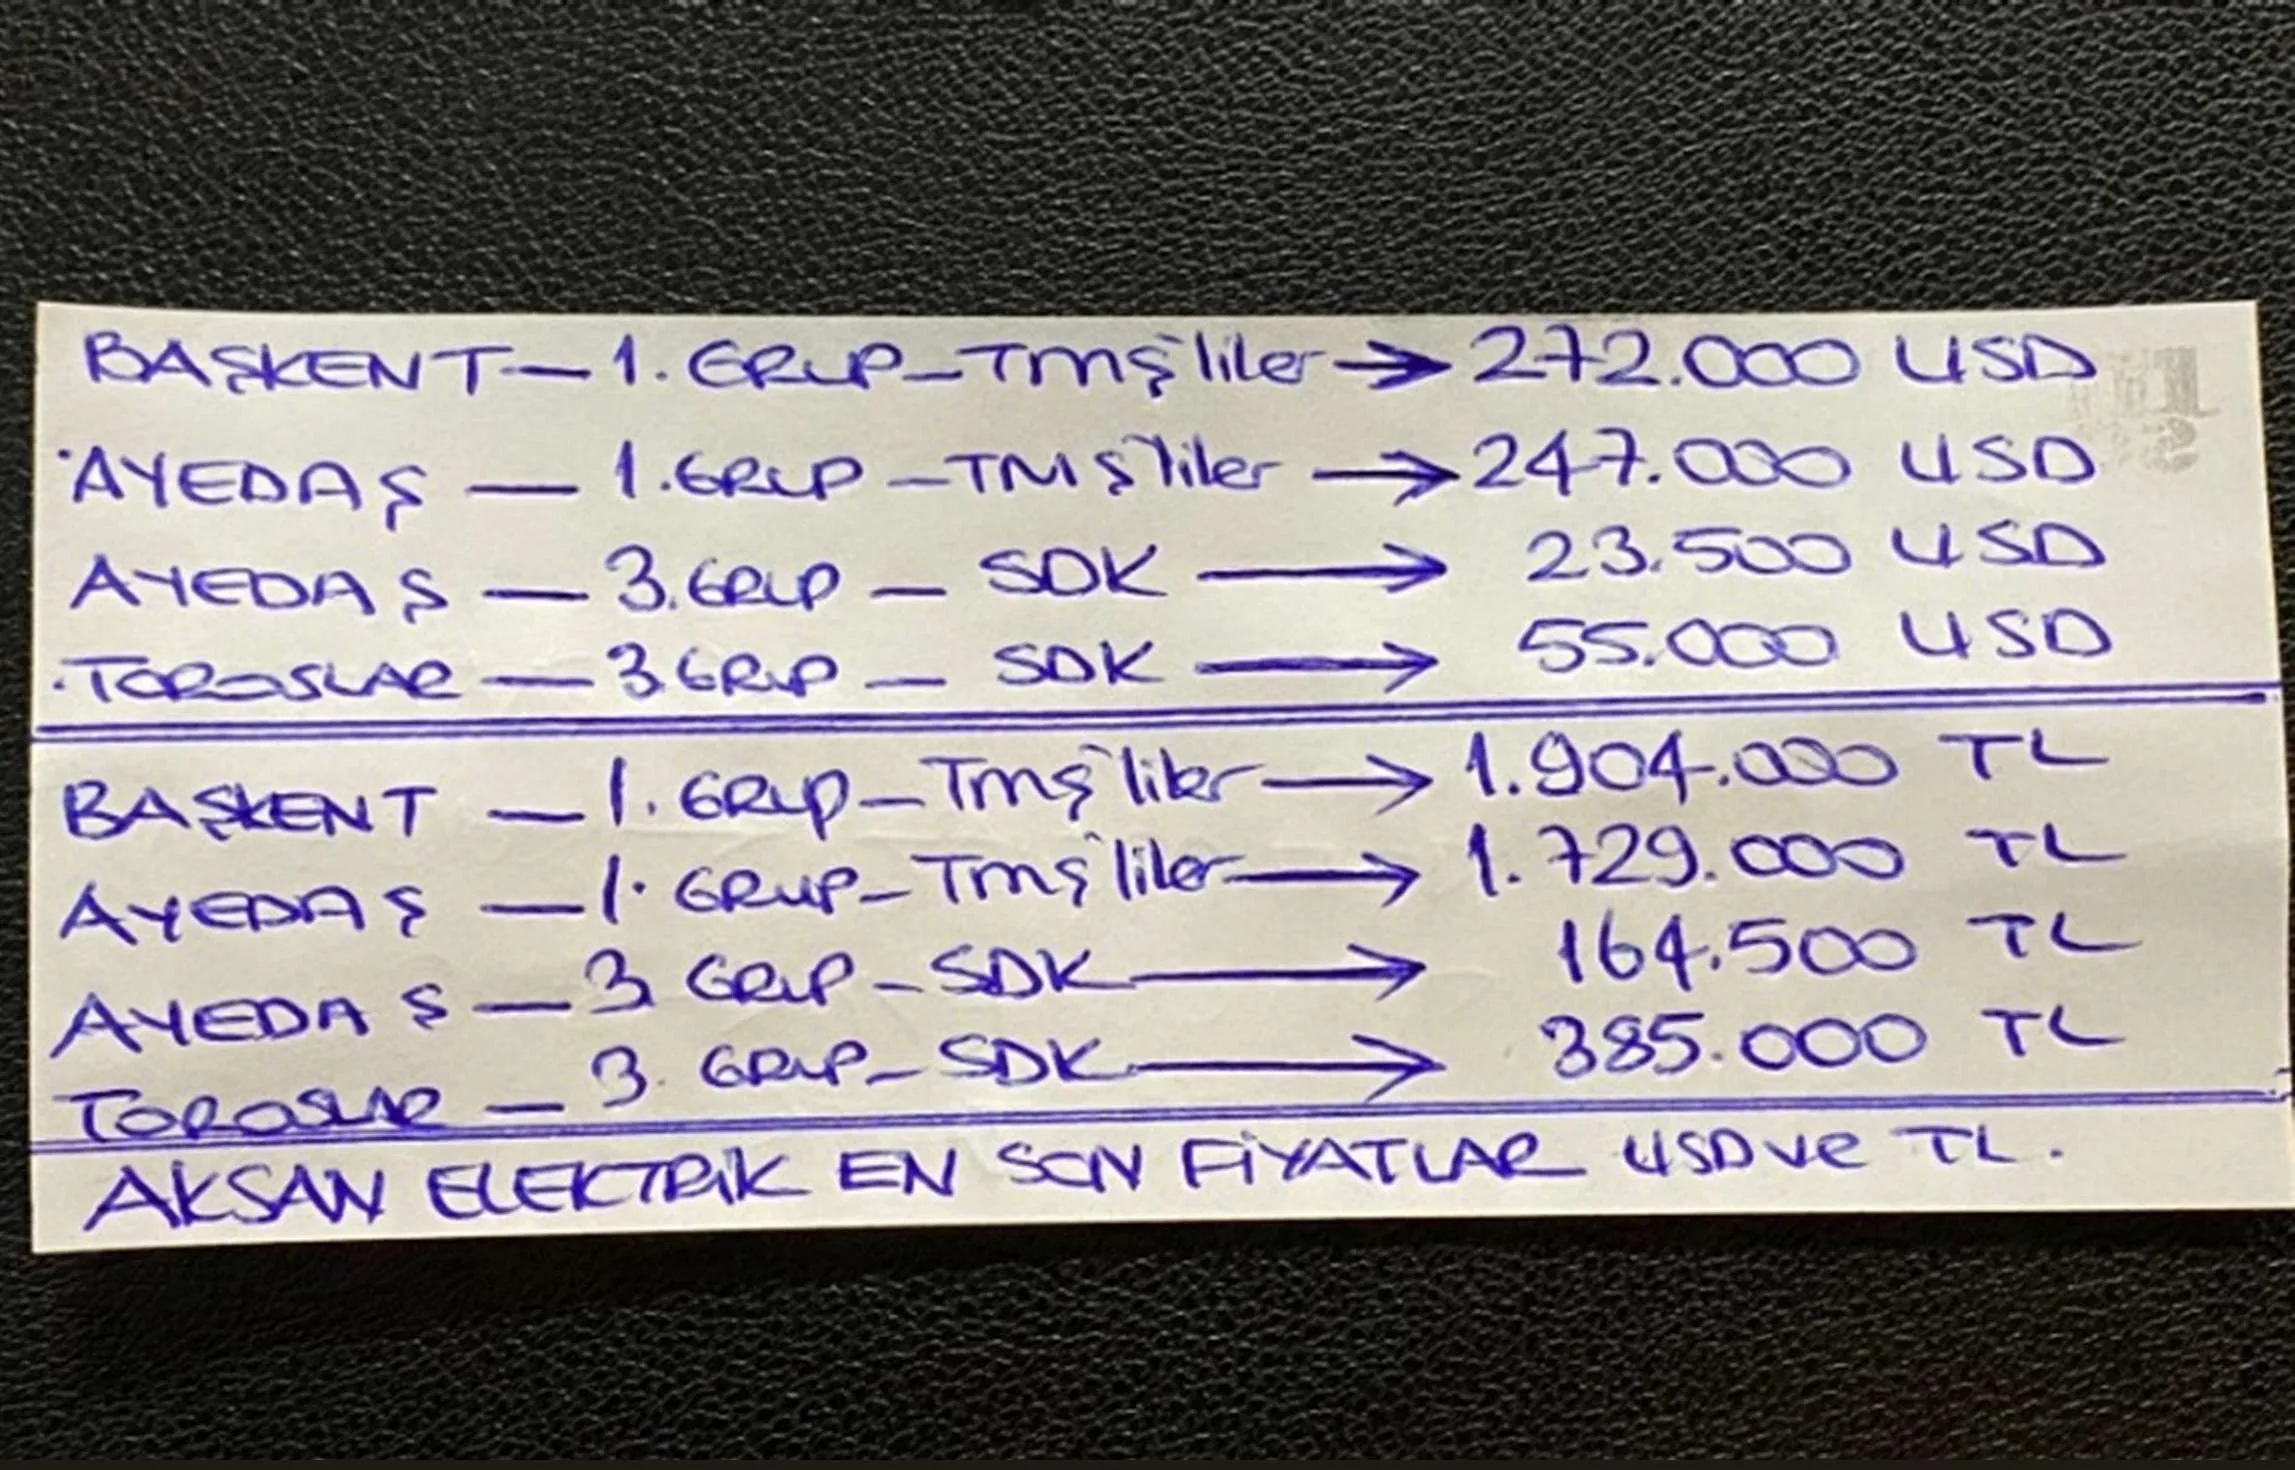 BAŞKENT — 1. GRUP — TMŞ'liler → 272.000 USD
AYEDAŞ — 1. GRUP — TMŞ'liler → 247.000 USD
AYEDAŞ — 3. GRUP — SDK → 23.500 USD
TOROSLAR — 3. GRUP — SDK → 55.000 USD
BAŞKENT — 1. GRUP — TMŞ'liler → 1.904.000 TL
AYEDAŞ — 1. GRUP — TMŞ'liler → 1.729.000 TL
AYEDAŞ — 3. GRUP — SDK → 164.500 TL
TOROSLAR — 3. GRUP — SDK → 385.000 TL
AKSAN ELEKTRİK EN SON FİYATLAR USD ve TL.